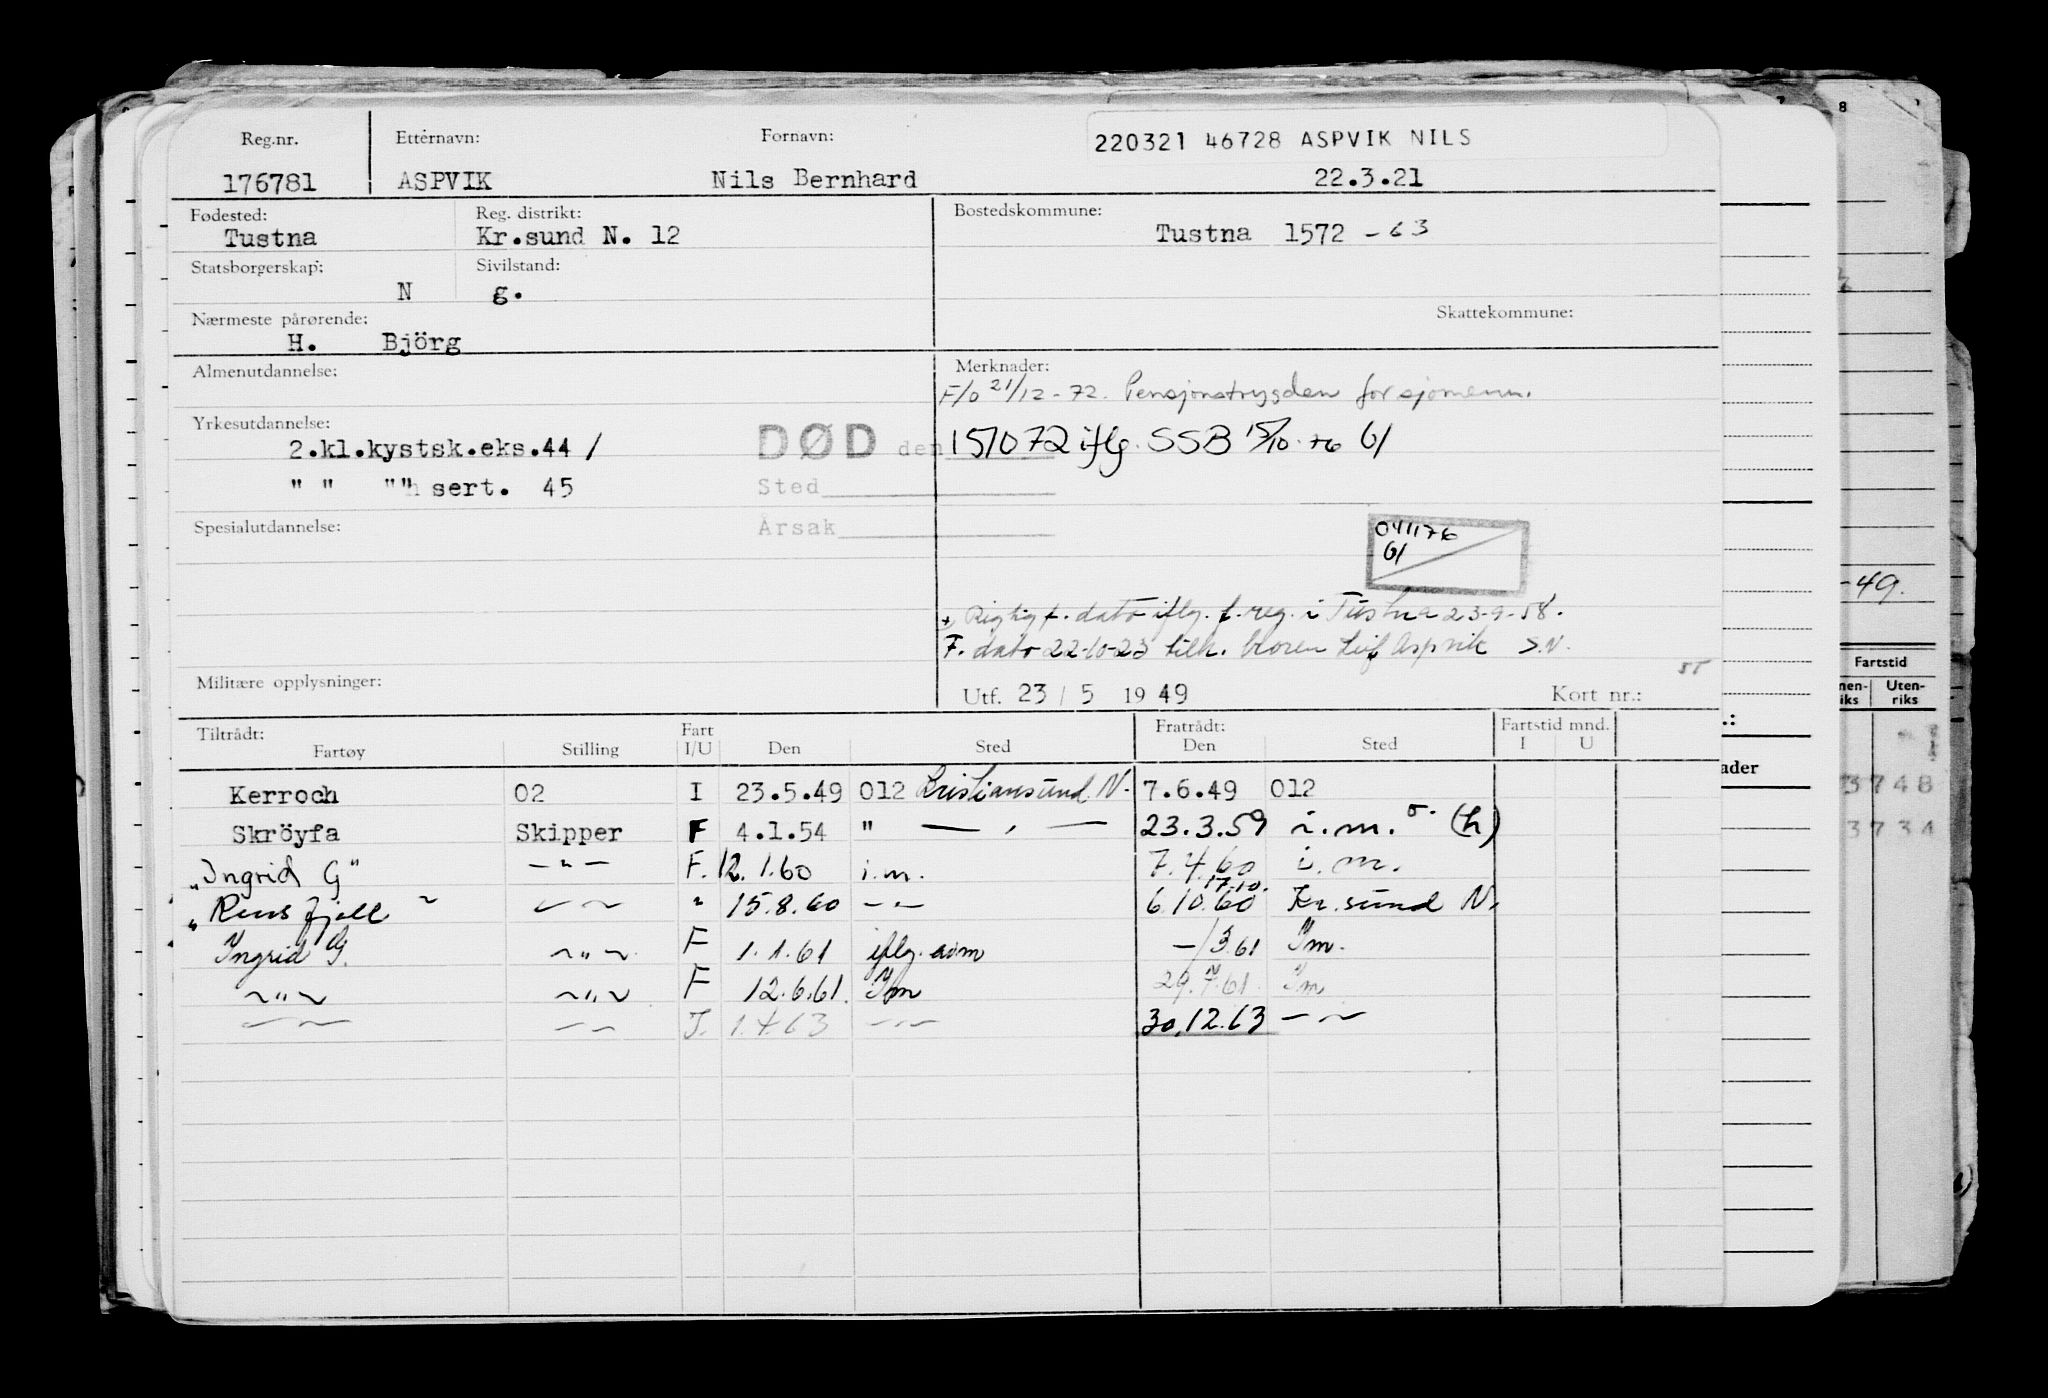 Reg.nr. Etternavn: Fornavn: 220321 46728 ASPVIK NILS
176781 ASPVIK Nils Bernhard 22.3.21
Fødested: Reg. distrikt: Bostedskommune:
Tustna Kr.sund N. 12 Tustna 1572 - 63
Statsborgerskap: Sivilstand:
N g.
Nærmeste pårørende: Skattekommune:
H. Björg
Almenutdannelse: Merknader:
F/o 21/12-72. Pensjonstrygden for sjømenn.
Yrkesutdannelse:
2.kl.kystsk.eks.44 / DØD den 151072 iflg. SSB 15/10-76 G/
" " "" sert. 45 Sted
Spesialutdannelse: Årsak
041176
G/
+ Rigtig f. dato iflg. f. reg. i Tustna 23-9-58.
F. dato 22-10-23 tilh. broren Leif Aspvik S.N.
Militære opplysninger: Utf. 23 / 5 19 49 Kort nr.:
Tiltrådt: Fart Fratrådt: Fartstid mnd.
Fartøy Stilling I/U Den Sted Den Sted I U
Kerroch 02 I 23.5.49 012 Kristiansund N. 7.6.49 012
Skröyfa Skipper F 4.1.54 " — , — 23.3.59 i.m. (h)
"Ingrid G" —"— F. 12.1.60 i.m. 7.4.60 i.m.
17.10.
"Rensfjell" — " 15.8.60 —"— 6.10.60 Kr.sund N.
Ingrid G. —"— F 1.1.61 iflg. adm —/3.61 Im.
—"— —"— F 12.6.61. Im 29.7.61. Im
—"— —"— I. 1.4.63 —"— 30.12.63 —"—
8
-49.
Fartstid
Uten-
riks
3748
3734